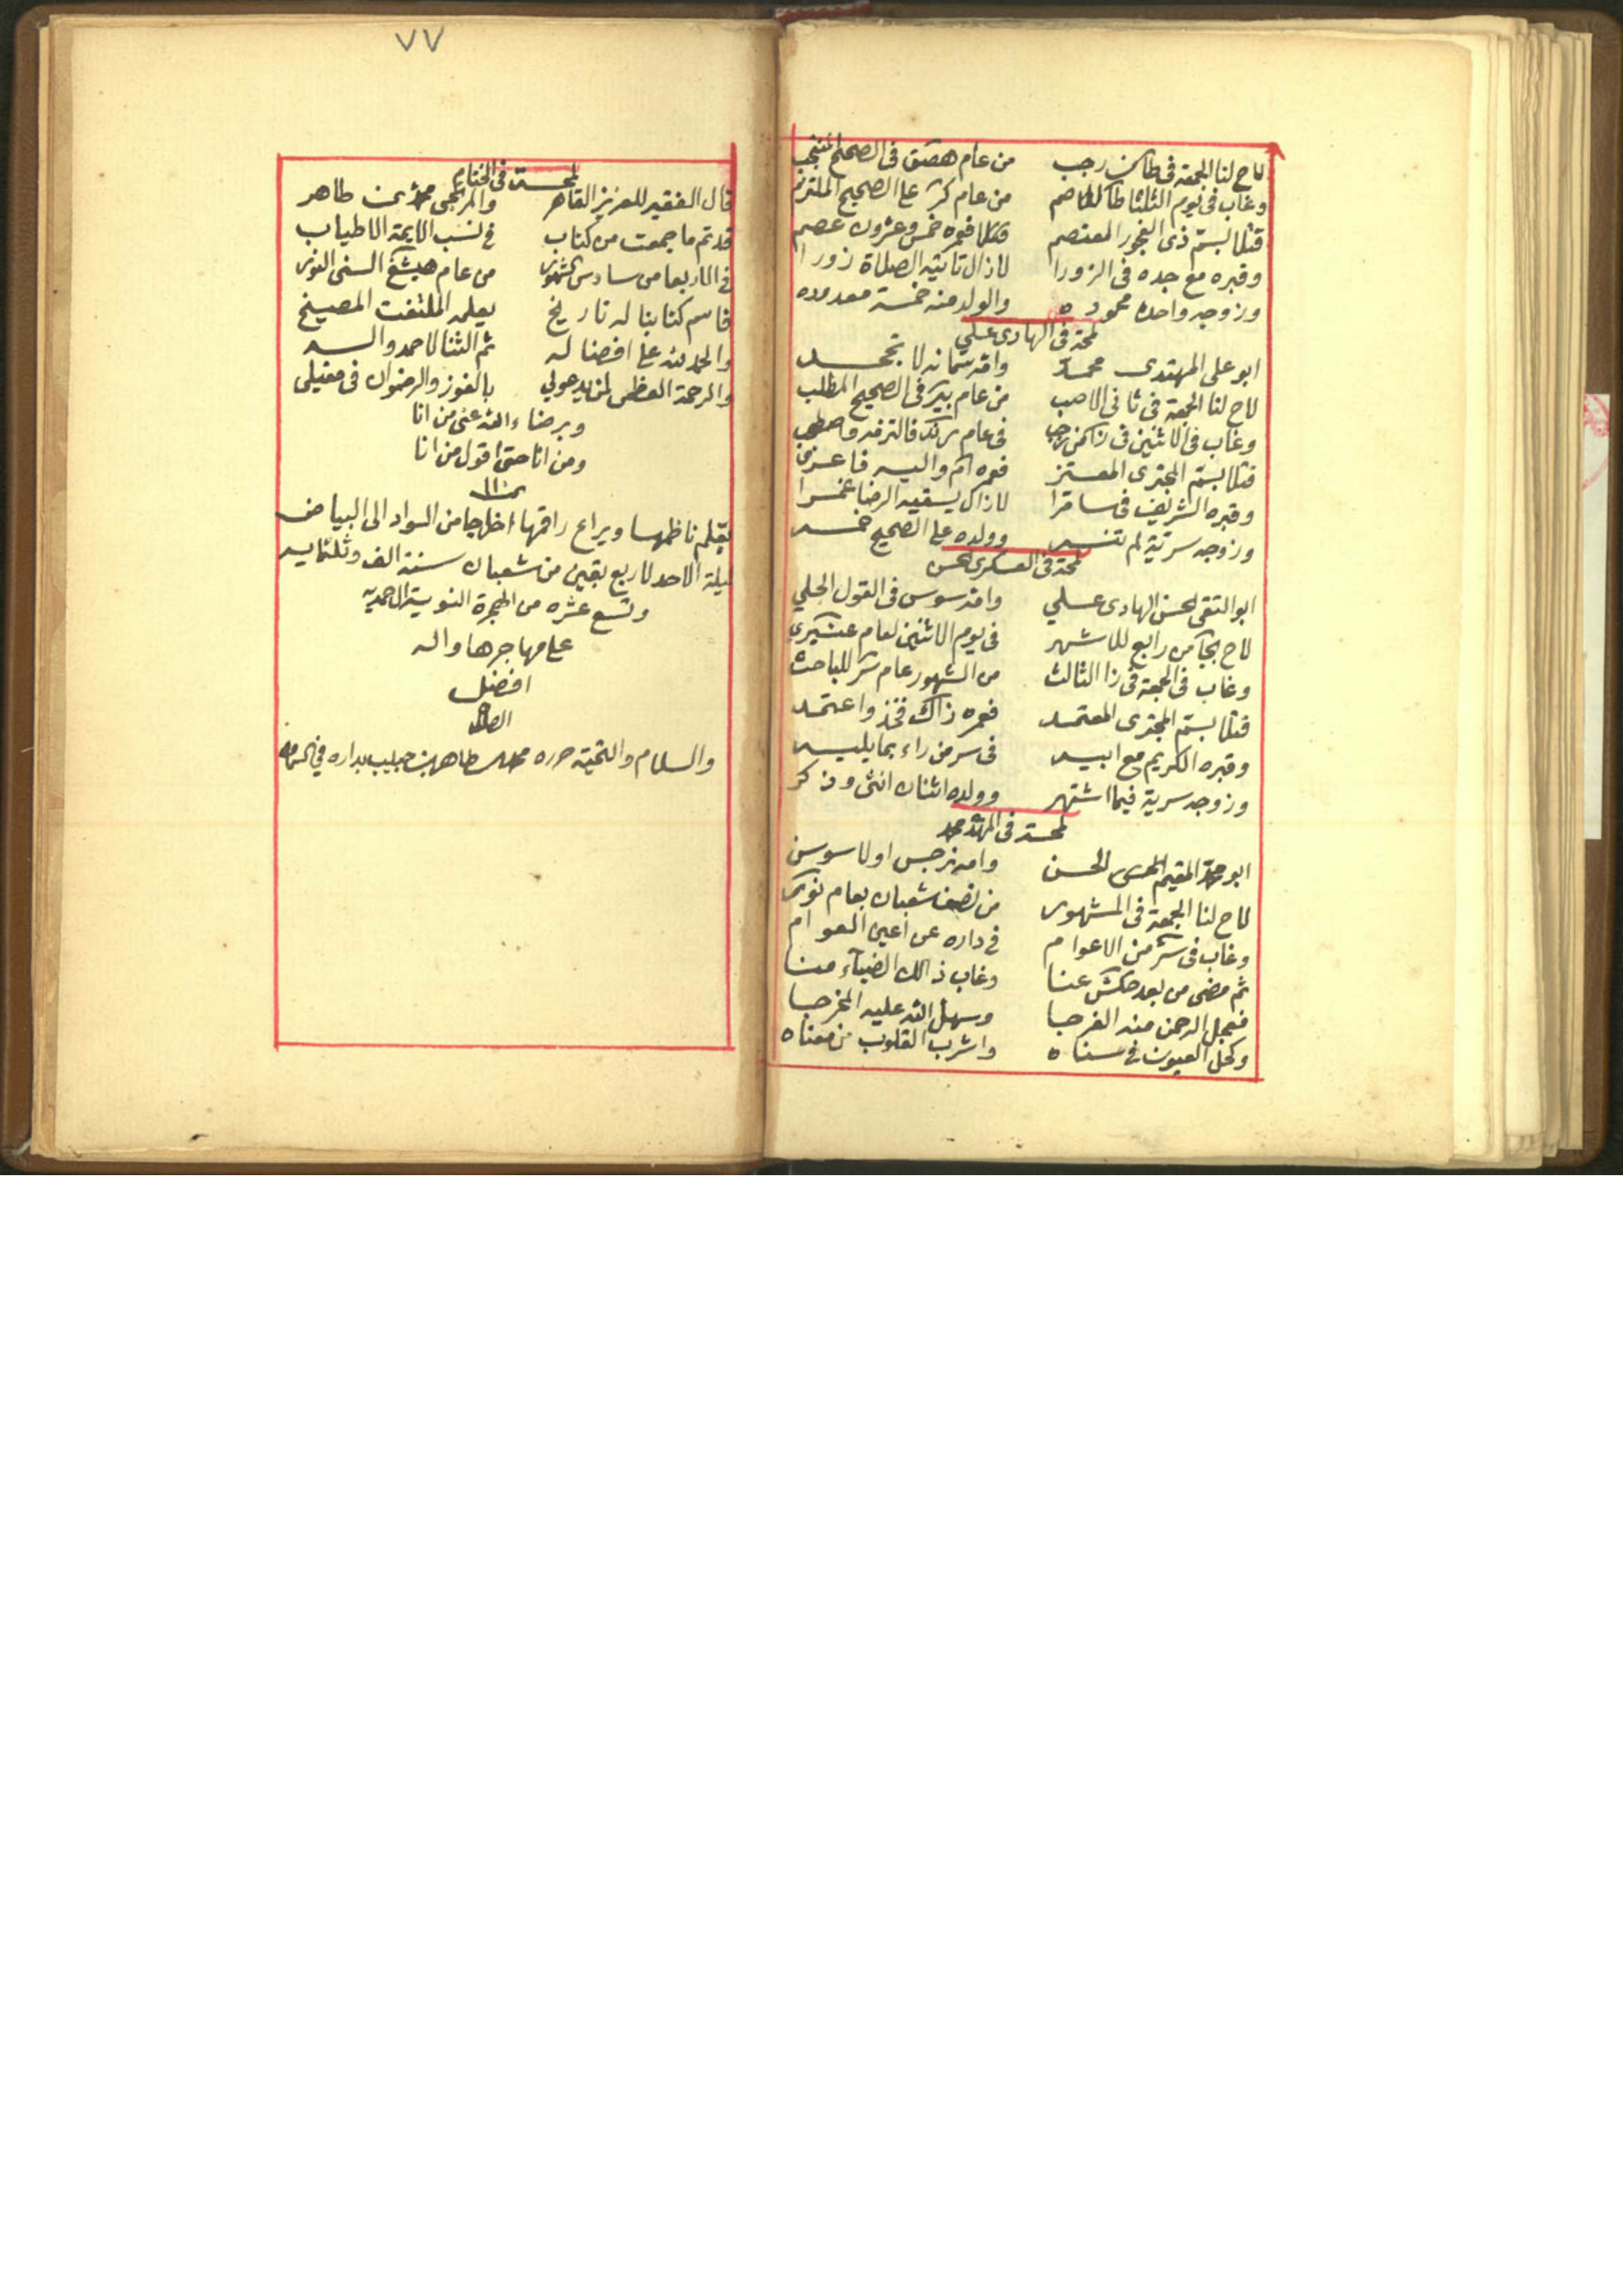 لاح لنا الجمعة فى طاكن رجب من عام هصق فى الصحيح المنتجب
وغاب فى يوم الثلثا من عام كر على الصحيح الملتزم
قتلا بسم ذى الفجور المعتصم فعمره خمس وعشرون عصم
وقبره مع جده فى الزورا لا زال تاتيه الصلاة زورا
وزوجه واحدة محموده والولد منه خمسة معدوده
لمحة فى الهادى على
ابو على المهتدى محمد وامه سمانه لا تجحد
لاح لنا الجمعة فى ثانى الاصب من عام بير فى الصحيح المطلب
وغاب فى الاثنين فى من رجب فى عام رند
قتلا بسم المجترى المعتز فعمره ام واليه فاعز
وقبره الشريف فى سامرا لا زال يسقيه الرضا غمرا
وزوجه سرية لم تنسه وولده على الصحيح خمسه
لمحة فى العسكرى الحسن
ابو التقى الحسن الهادى على وامه سوسن فى القول الجلي
لاح من رابع للاشهر فى يوم الاثنين لعام
وغاب فى الجمعة فى ذا الثالث من الشهور عام سر للباحث
قتلا بسم المجترى المعتمد فعمره ذاك فخذ واعتمد
وقبره الكريم مع ابيه فى سر من راء بما يليه
وزوجه سرية فيما اشتهر وولده اثنان انثى وذكر
لمحة فى المهدى محمد
ابو محمد المقيم الحسن وامه نرجس او لا سوسن
لاح لنا الجمعة فى المشهور من نصف شعبان بعام نور
وغاب فى سر من الاعوام فى داره عن اعين العوام
ثم مضى من بعد عنا وغاب ذالك الضياء منا
فعجل الرحمن منه الفرجا وسهل الله عليه المخرجا
وكحل العيون فى سناه واشرب القلوب من معناه
٧٧
لمحة فى الختام
قال الفقير للعزيز القاهر والمرتجى محمد بن طاهر
قد تم ما جمعت من كتاب فى نسب الايمة الاطياب
فى الاربعا من سادس الشهور من عام هبشغ السنى النورى
فاسم كتابنا له تاريخ يعلمه الملتفت المصيخ
والحمد لله على افضاله ثم الثنا لاحمد واله
والرحمة العظمى لمن يدعو لي بالفوز والرضوان فى مقيلى
وبرضاء الله عنى من انا
ومن انا حتى اقول من انا
تمت
بقلم ناظمها ويراع راقمها اخراجا من السواد الى البياض
ليلة الاحد لاربع بقين من شعبان سنة الف وثلثمايه
وتسع عشره من الهجرة النبوية الاحمديه
على مهاجرها واله
افضل
الصلاة
والسلام والتحية حرره محمد بن طاهر بن حبيب بداره فى السماوه